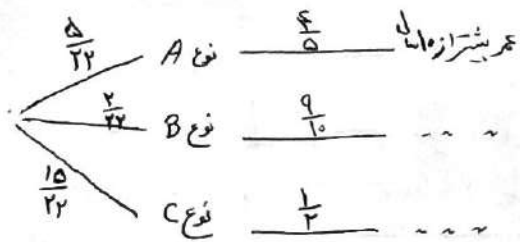 ۵/۲۲ نوع A ۴/۵ عمر بیشتر از ۱۰ سال
۲/۲۲ نوع B ۹/۱۰ " " "
۱۵/۲۲ نوع C ۱/۲ " " "